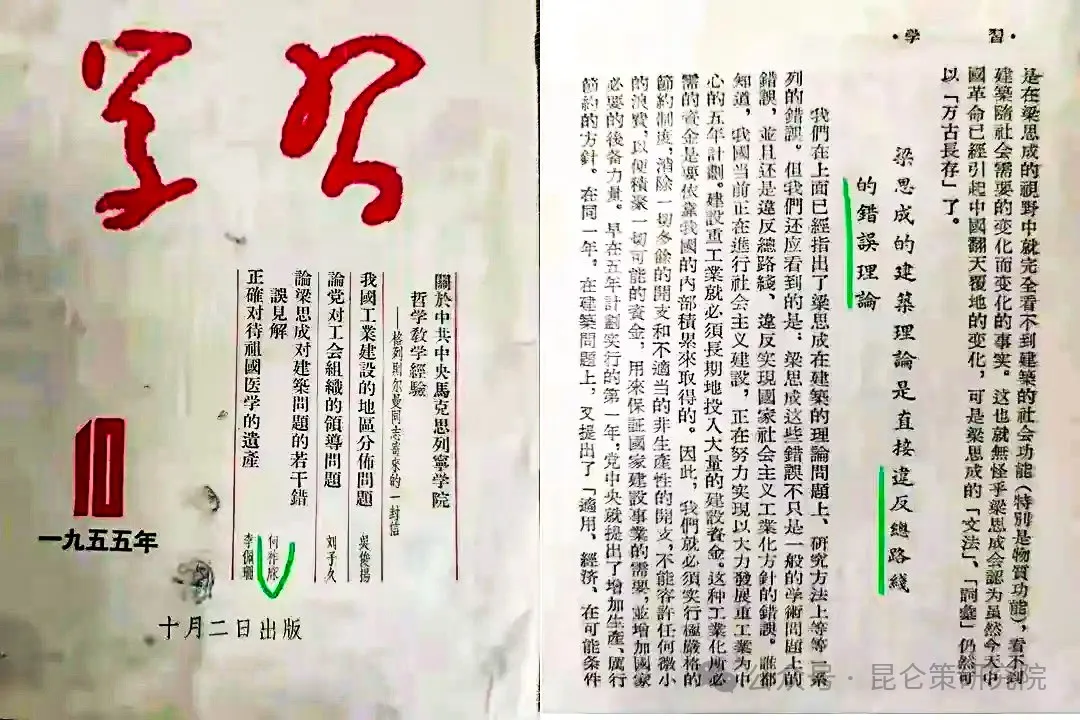 学习
關於中共中央馬克思列寧学院
哲学教学經驗
——格列則尔曼同志寄來的一封信
我國工業建設的地區分佈問題
吳俊揚
論党对工会組織的領導問題
刘子久
論梁思成对建築問題的若干錯
誤見解
何祚庥
正確对待祖國医学的遺產
李佩珊
10
一九五五年
十月二日出版
·學習·
是在梁思成的視野中就完全看不到建築的社会功能（特別是物質功能），看不到
建築隨社会需要的变化而变化的事实。这也就無怪乎梁思成会認为虽然今天中
國革命已經引起中國翻天覆地的变化，可是梁思成的「文法」、「詞彙」仍然可
以「万古長存」了。
梁思成的建築理論是直接違反總路綫
的錯誤理論
我們在上面已經指出了梁思成在建築的理論問題上、研究方法上等等一系
列的錯誤。但我們还应看到的是，梁思成这些錯誤不只是一般的学術問題上的
錯誤，並且还是違反總路綫、違反实現國家社会主义工業化方針的錯誤。誰都
知道，我國当前正在進行社会主义建設，正在努力实現以大力發展重工業为中
心的五年計劃。建設重工業就必須長期地投入大量的建設資金。这种工業化所必
需的資金是要依靠我國的內部積累來取得的。因此，我們就必須实行極嚴格的
節約制度，消除一切多餘的開支和不適当的非生產性的開支，不能容許任何微小
的浪費，以便積聚一切可能的資金，用來保証國家建設事業的需要，並增加國家
必要的後备力量。早在五年計劃实行的第一年，党中央就提出了增加生產、厲行
節約的方針。在同一年，在建築問題上，又提出了「適用、經济、在可能条件
公众号·昆仑策研究院